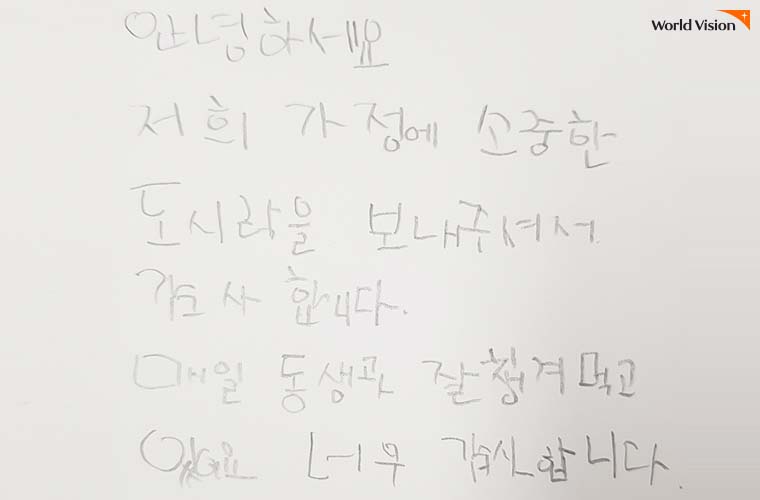 World Vision
안녕하세요
저희 가정에 소중한
도시락을 보내주셔서
감사 합니다.
매일 동생과 잘챙겨먹고
있어요 너무 감사합니다.